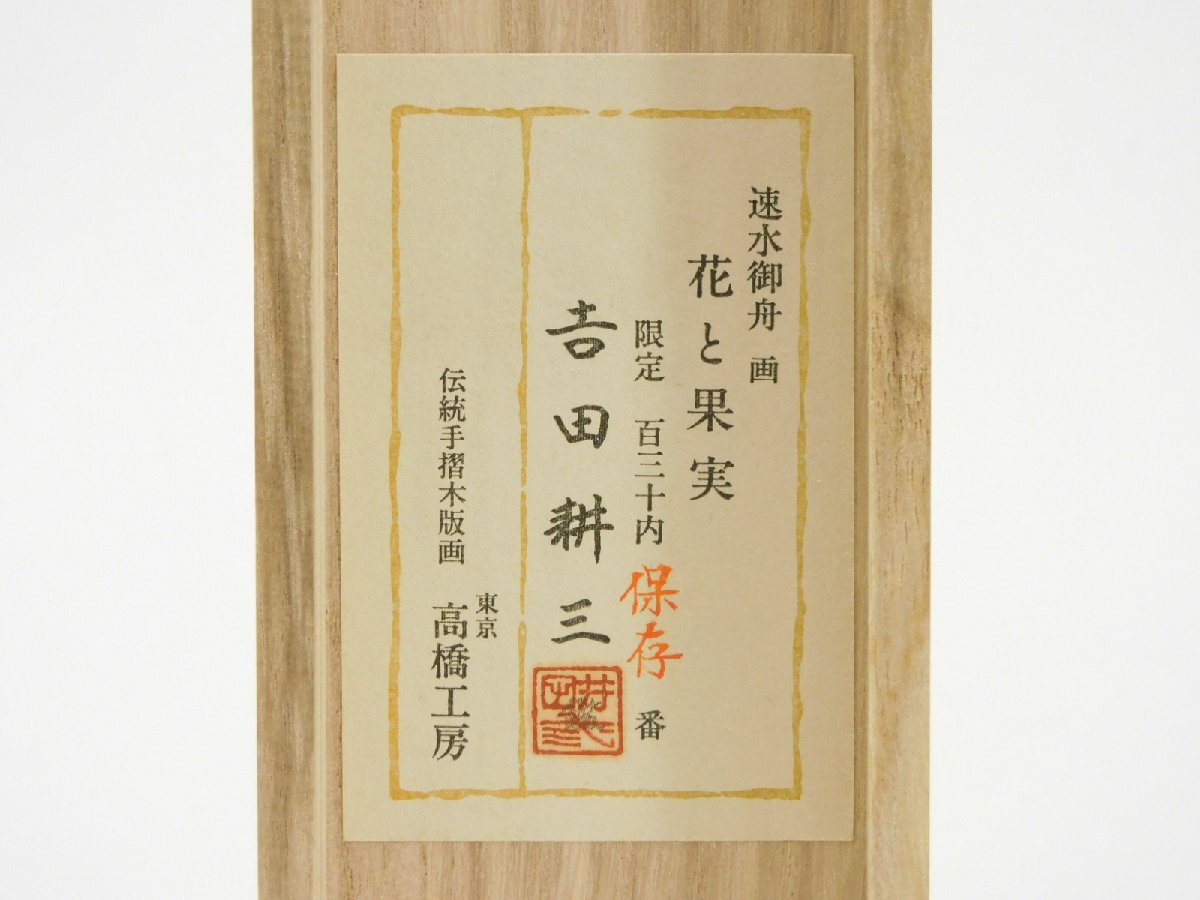 速水御舟 画
花と果実
限定 百三十内 保存 番
吉田耕三
伝統手摺木版画
東京
高橋工房